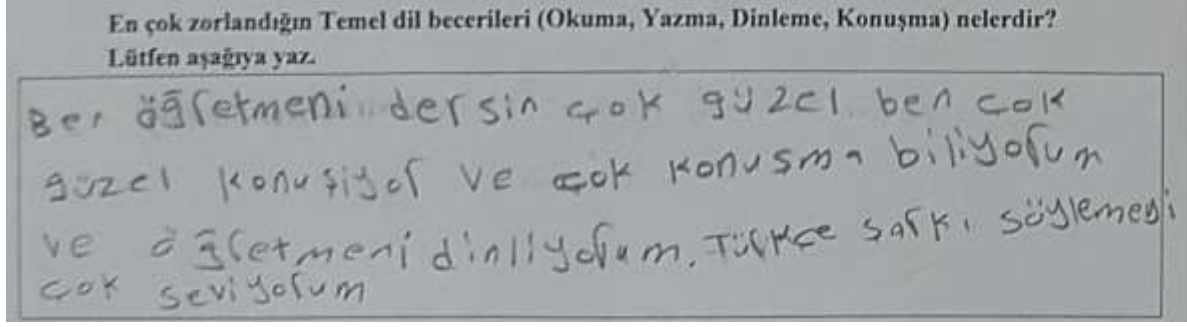 En çok zorlandığın Temel dil becerileri (Okuma, Yazma, Dinleme, Konuşma) nelerdir?
Lütfen aşağıya yaz.
Ben öğretmeni dersin çok güzel ben çok
güzel konuşiyor ve çok konuşma biliyorum
ve öğretmeni dinliyorum. Türkçe sarkı söylemeyi
çok seviyorum